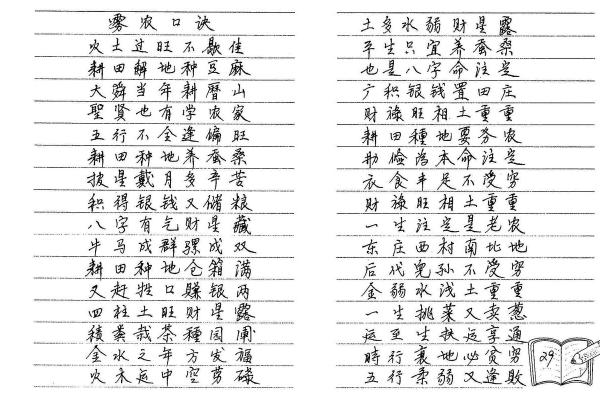 务农口诀
火土过旺不歇佳
耕田解地种豆麻
大舜当年耕曆山
聖贤也有学农家
五行不全逢偏旺
耕田种地养蚕桑
披星戴月多辛苦
积得银钱又储粮
八字有气财星藏
牛马成群骡成双
耕田种地仓箱满
又赶牲口賺银两
四柱土旺财星露
積業栽茶種园圃
金水之年方发福
火木运中空劳碌
土多水弱财星露
平生只宜养蚕桑
也是八字命注定
广积银钱置田庄
财禄旺相土重重
耕田種地要务农
勤儉為本命注定
衣食丰足不受穷
财禄旺相土重重
一生注定是老农
东庄西村南北地
后代兒孙不受穷
金弱水浅土重重
一生挑菜又卖葱
运至生扶运享通
時行衰地必贫穷
五行柔弱又逢敗
29